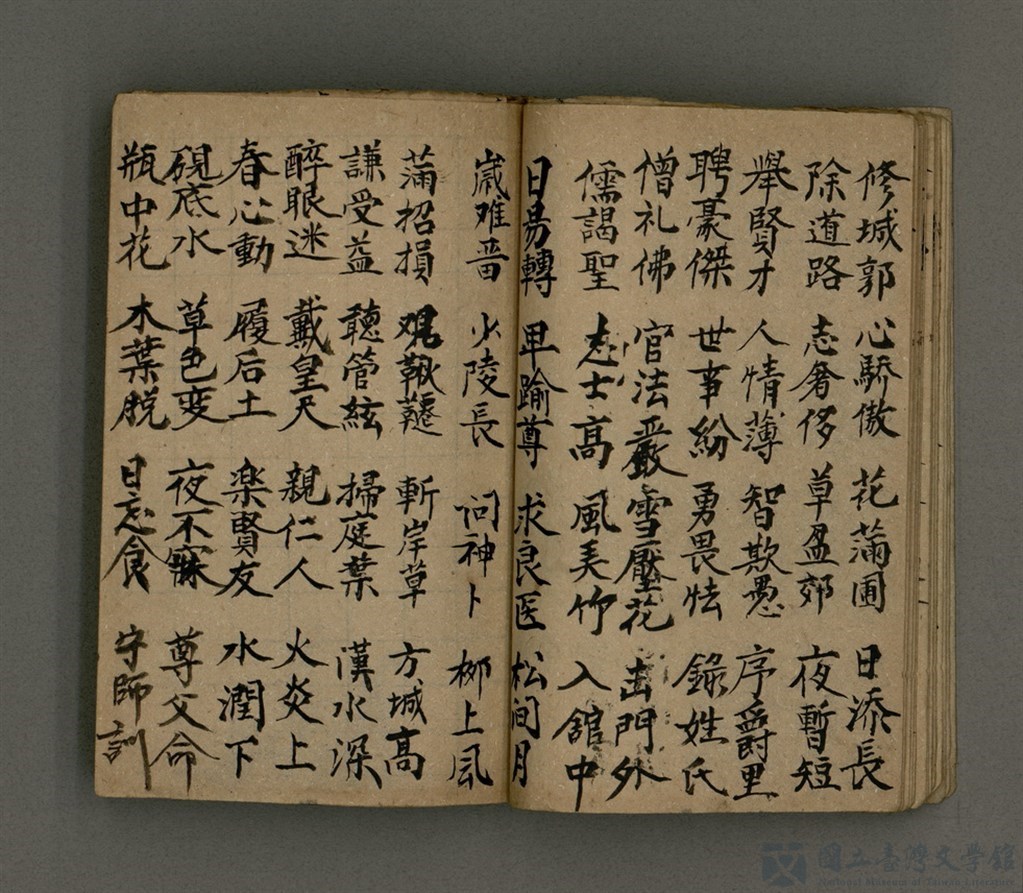 修城郭 心驕傲 花滿圃 日添長
除道路 志奢侈 草盈郊 夜暫短
舉賢才 人情薄 智欺愚 序爵里
聘豪傑 世事紛 勇畏怯 錄姓氏
僧礼佛 官法嚴 雪壓花 出門外
儒謁聖 志士高 風美竹 入舘中
日易轉 卑踰尊 求良医 松间月
歲难 少陵長 问神卜 柳上風
滿招損 观鞦韆 斬岸草 方城高
謙受益 聽管絃 掃庭葉 漢水深
醉眼迷 戴皇天 親仁人 火炎上
春心動 履后土 楽賢友 水潤下
硯底水 草色变 夜不寐 尊父命
瓶中花 木葉脱 日忘食 守師訓
國立臺灣文學館
National Museum of Taiwan Literature